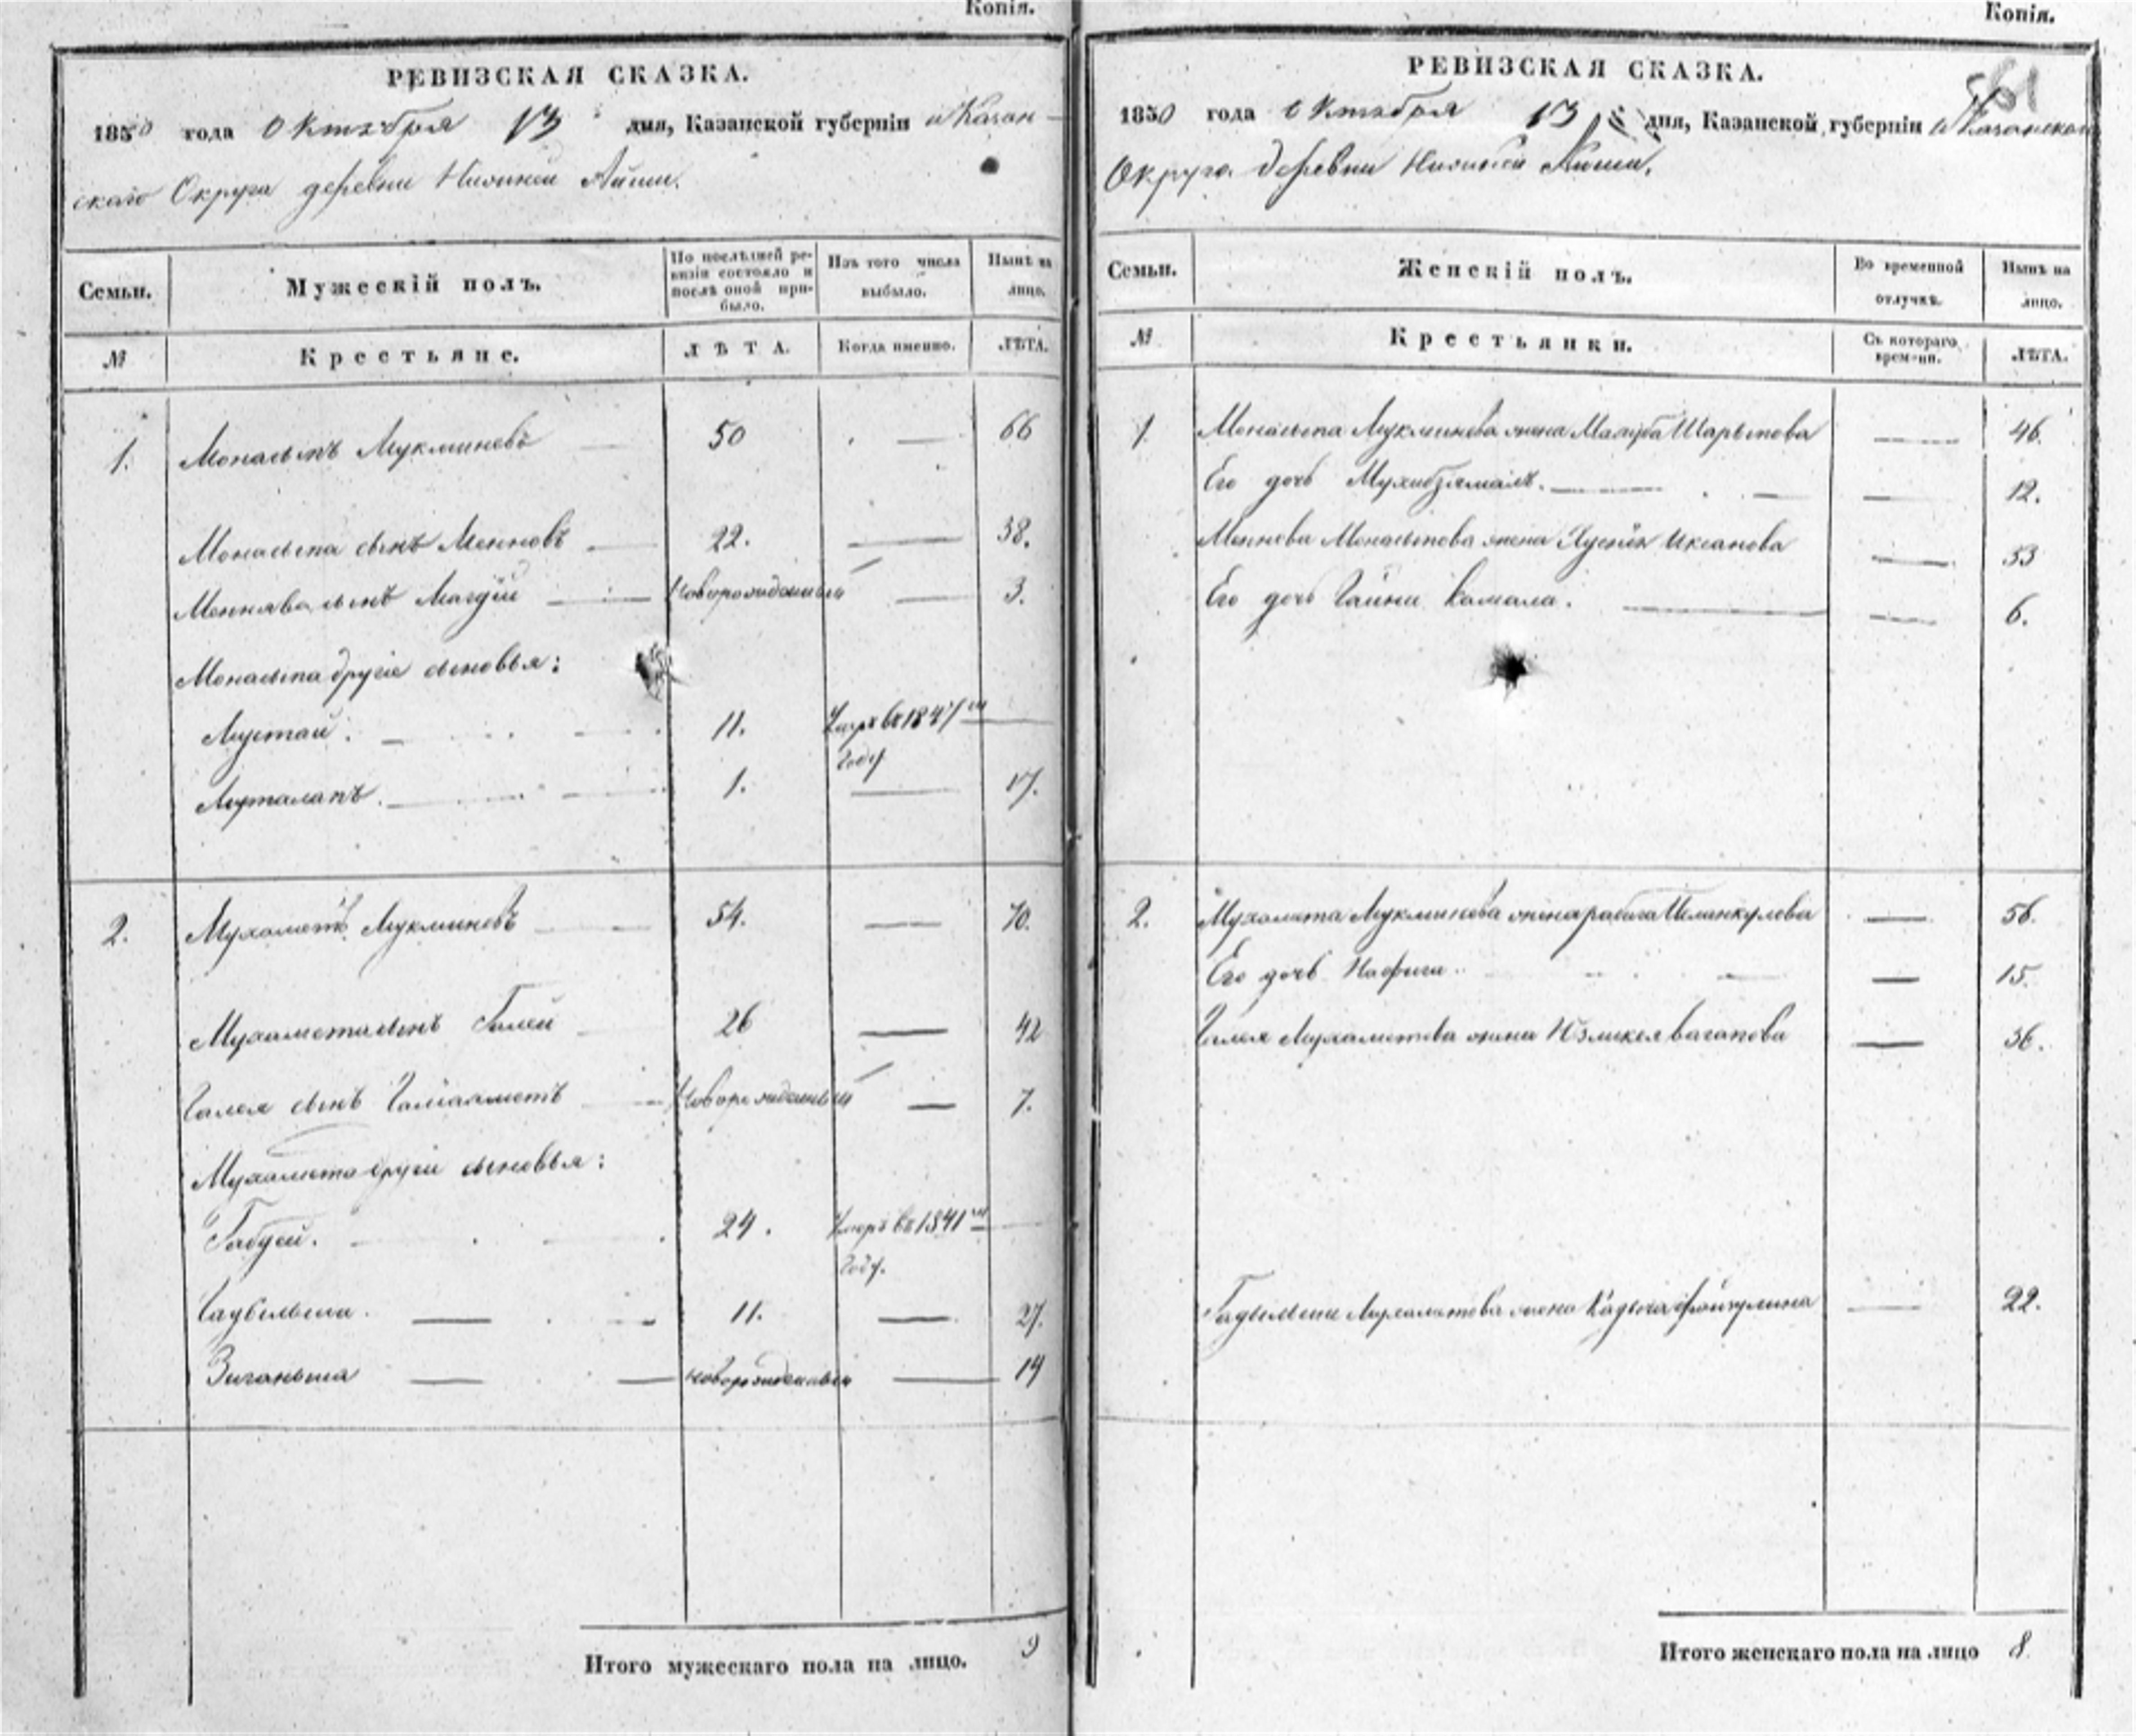 Копія.
РЕВИЗСКАЯ СКАЗКА.
1850 года Октября 13 дня, Казанской губерніи и Казан-
скаго Округа деревни Нижней Айши.
Семьи.
Мужескій полъ.
По послѣдней ре-
визіи состояло и
послѣ оной при-
было.
Изъ того числа
выбыло.
Нынѣ на
лицо.
№
Крестьяне.
ЛѢТА.
Когда именно.
ЛѢТА.
1. Монасыпъ Мукминовъ 50 66
Монасыпа сынъ Менновъ 22. 38.
сынъ Магдій Новорожденный 3.
Монасыпа другіе сыновья:
Мустай 11. Умеръ въ 1847м
году
Муталапъ 1. 17.
2. Мухаметъ Мукминовъ 54. 70.
Мухамета сынъ Галей 26 42
Галея сынъ Новорожденный 7.
Мухамета другіе сыновья:
24. Умеръ въ 1841м
году.
11. 27.
Зиганьша Новорожденный 14
Итого мужескаго пола на лицо. 9
Копія.
РЕВИЗСКАЯ СКАЗКА.
561
1850 года Октября 13 дня, Казанской губерніи и Казанскаго
Округа деревни Нижней Айши.
Семьи.
Женскій полъ.
Во временной
отлучкѣ.
Нынѣ на
лицо.
№
Крестьянки.
Съ котораго
времени.
ЛѢТА.
1 Монасыпа Мукминова жена Шарыпова 46.
Его дочь Мухибзямалъ. 12.
Меннова Монасыпова жена Иксанова 33
Его дочь Гайни Камала. 6.
2. Мухамета Мукминова жена Рабига Иманкулова 56.
Его дочь Нафига 15.
Галея Мухаметова жена Вагапова 36.
Мухаметова жена Кадыча Файзулина 22.
Итого женскаго пола на лицо 8.